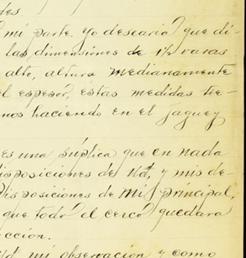 des
mi parte yo desearia que di-
las dimensiones de 1½ varas
alto, altura medianamente
el espesor, estas medidas te-
mos haciendo en el jaguey
es una súplica que en nada
disposiciones de Ud, y mis de-
disposiciones de mi principal,
que todo el cerco quedara
ccion.
Ud mi observacion y como